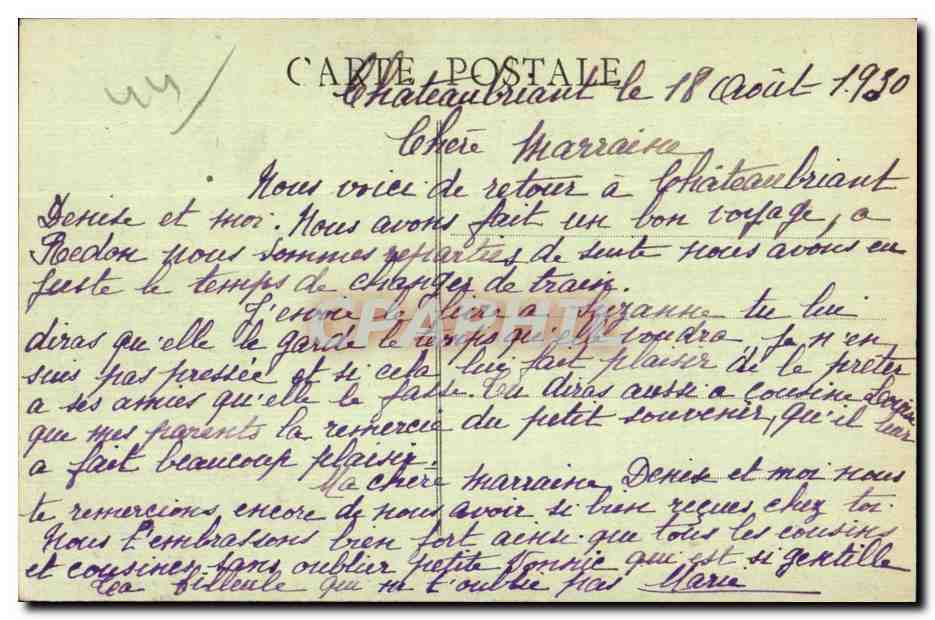 44/
CARTE POSTALE
Châteaubriant le 18 Août 1930
Chère Marraine
Nous voici de retour à Châteaubriant
Denise et moi. Nous avons fait un bon voyage, a
Redon nous sommes reparties de suite nous avons eu
juste le temps de changer de train.
J'envoie le livre à Suzanne tu lui
diras qu'elle le garde le temps qu'elle voudra, je n'en
suis pas pressée et si cela lui fait plaisir de le prêter
a ses amies qu'elle le fasse. Tu diras aussi a cousine
que mes parents la remercie du petit souvenir, qu'il leur
a fait beaucoup plaisir.
Ma chère Marraine, Denise et moi nous
te remercions encore de nous avoir si bien reçues chez toi.
Nous t'embrassons bien fort ainsi que tous les cousins
et cousines sans oublier petite qui est si gentille
Ta filleule qui ne t'oublie pas Marie
CPAPHIL